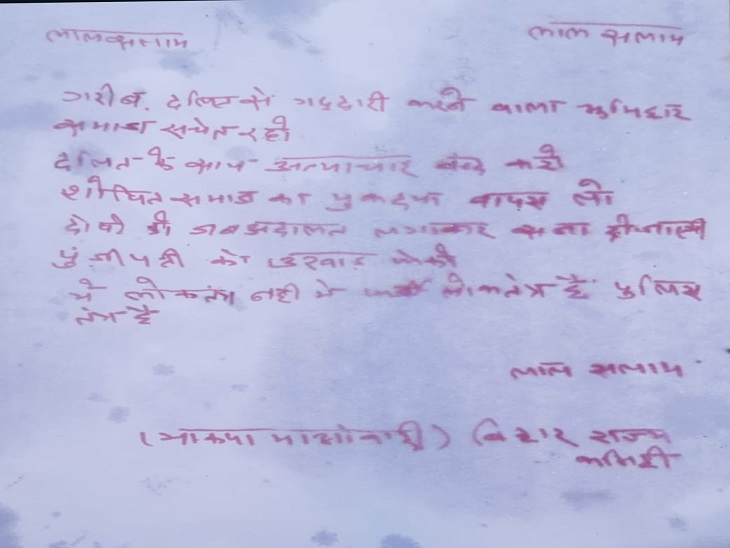 लालसलाम लाल सलाम
गरीब. दलित से गद्दारी करने वाला भुमिहार
समाज सचेत रहो
दलित के साथ अत्याचार बंद करो
शोषित समाज का मुकदमा वापस लो
दोषी को जनअदालत लगाकर सजा दी जाएगी
पुंजीपती को उखाड़ फेको
ये लोकतंत्र नही ये लोकतंत्र है पुलिस
तंत्र है
लाल सलाम
(भाकपा माओवादी) बिहार राज्य
कमिटी